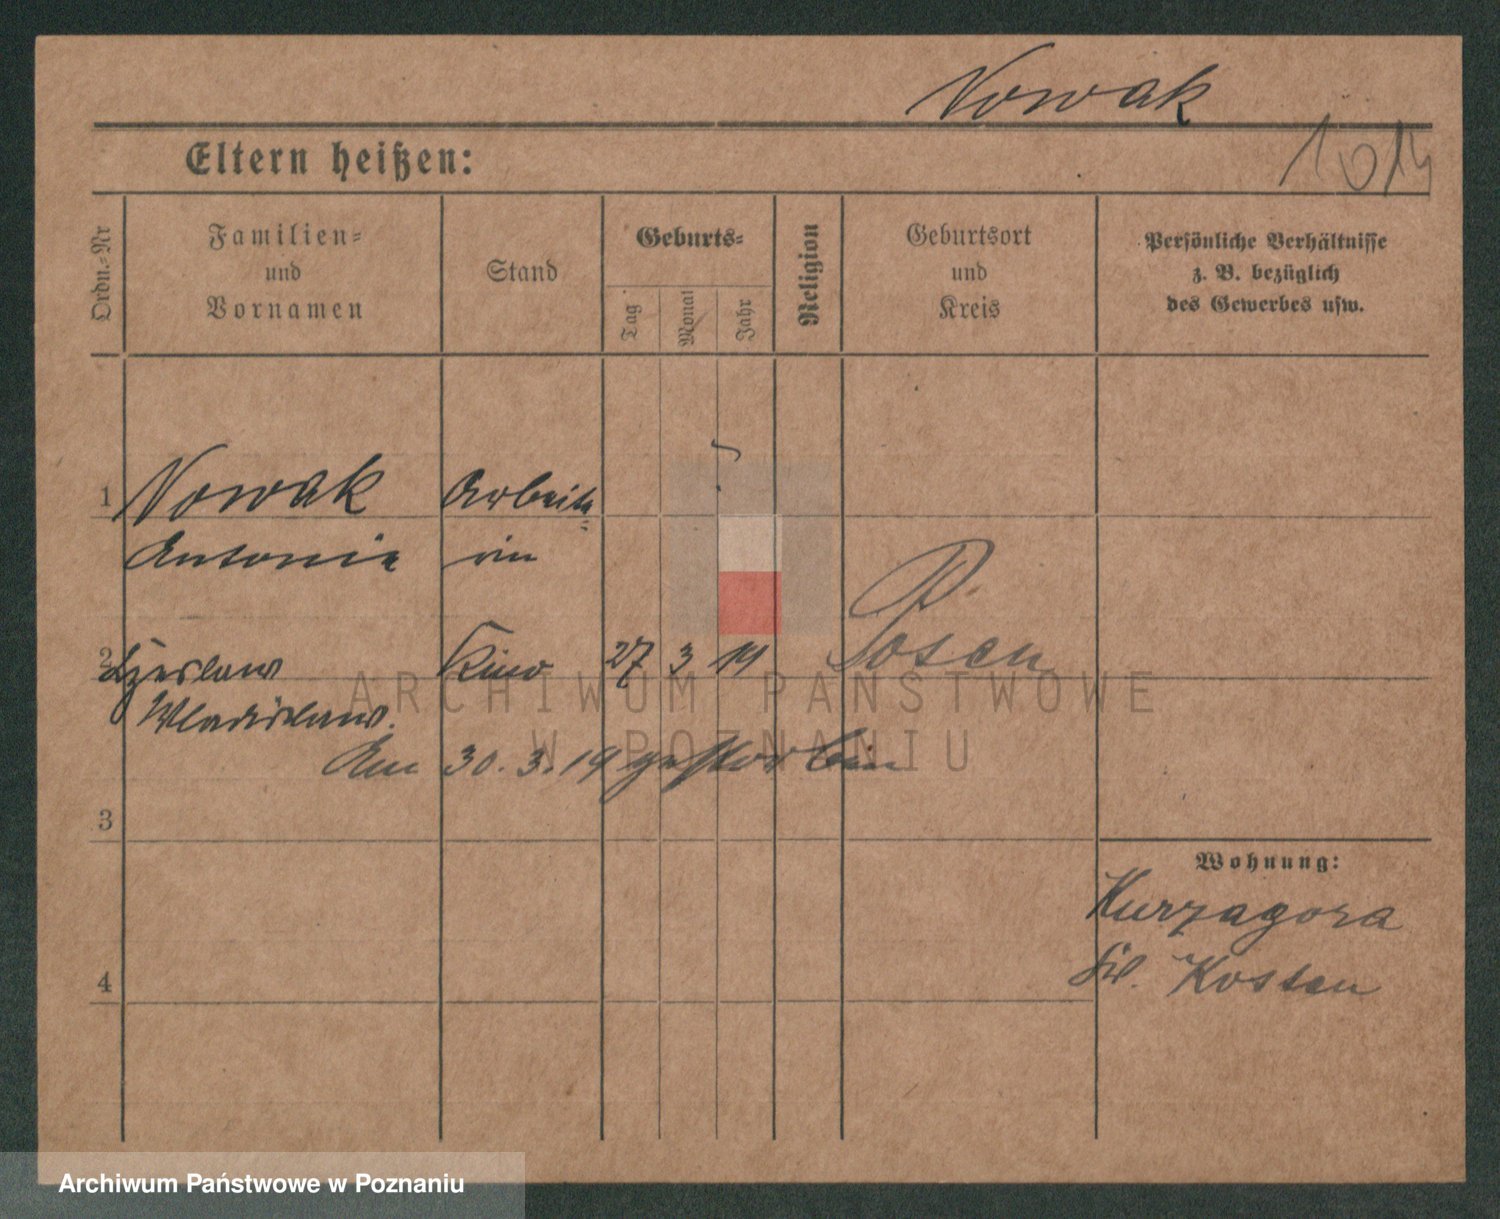 Nowak
Eltern heißen:
1014
Ordn.-Nr
Familien-
und
Vornamen
Stand
Geburts-
Tag
Monat
Jahr
Religion
Geburtsort
und
Kreis
Persönliche Verhältnisse
z. B. bezüglich
des Gewerbes usw.
1 Nowak Arbeite- ?
Antonie rin
2 Czeslaw Kind 27 3 19 Posen
Wladislaus.
Am 30. 3. 19 gestorben
3
Wohnung:
Kurzagora
Kr. Kosten
4
ARCHIWUM PAŃSTWOWE
W POZNANIU
Archiwum Państwowe w Poznaniu